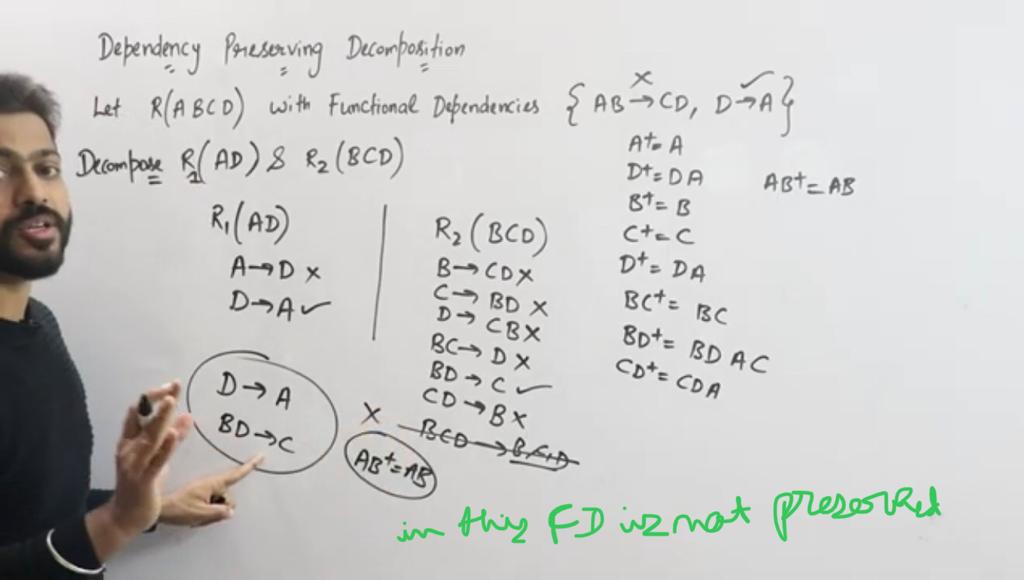 Dependency Preserving Decomposition
Let R(ABCD) with Functional Dependencies { AB→CD, D→A }
× ✓
Decompose R1(AD) & R2(BCD)
R1(AD)
A→D ×
D→A ✓
D→A
BD→C
×
AB+=AB
R2(BCD)
B→CD ×
C→BD ×
D→CB ×
BC→D ×
BD→C ✓
CD→B ×
BCD→BCD
A+=A
D+=DA
B+=B
C+=C
D+=DA
BC+=BC
BD+=BDAC
CD+=CDA
AB+=AB
in this FD is not preserved